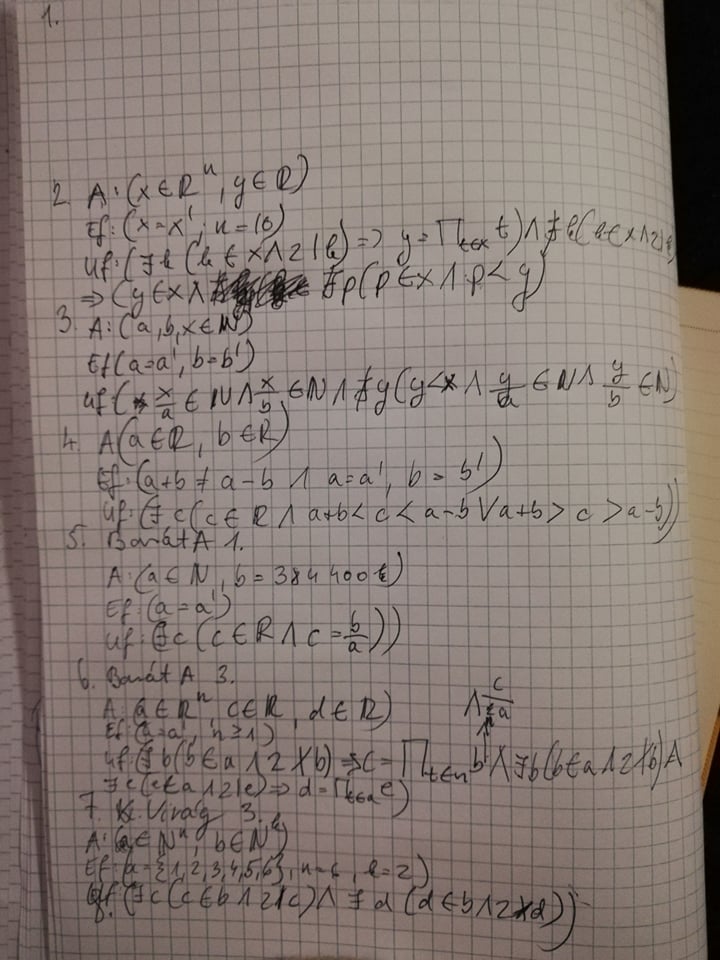 1.
2. A: (x∈ℝⁿ, y∈ℝ)
Ef: (x=x', n=10)
Uf: (∃k(k∈x∧2|k) => y=∏t∈x t)∧∄k(k∈x∧2|k)
=> (y∈x∧ ∄p(p∈x∧p<y)
3. A: (a,b,x∈ℕ)
Ef(a=a', b=b')
Uf(x/a∈ℕ∧x/b∈ℕ∧∄y(y<x∧y/a∈ℕ∧y/b∈ℕ)
4. A(a∈ℝ, b∈ℝ)
Ef: (a+b≠a-b ∧ a=a', b=b')
Uf: (∃c(c∈ℝ∧a+b<c<a-b∨a+b>c>a-b))
5. Barát A 1.
A: (a∈ℕ, b=384 400)
Ef: (a=a')
Uf: (∃c(c∈ℝ∧c=b/a))
6. Barát A 3.
A: (a∈ℝⁿ, c∈ℝ, d∈ℝ)
∧ c/a
Ef: (a=a', n≥1)
Uf: (∃b(b∈a∧2∤b) => c=∏t∈n b ∧∃b(b∈a∧2∤b)∧
∃e(e∈a∧2|e) => d=∏t∈a e)
7. K. Virág 3.
A: (a∈ℕⁿ, b∈ℕᵏ)
Ef: a={1,2,3,4,5,6}, n=6, k=2)
Uf(∃c(c∈b∧2|c)∧∃d(d∈b∧2∤d))